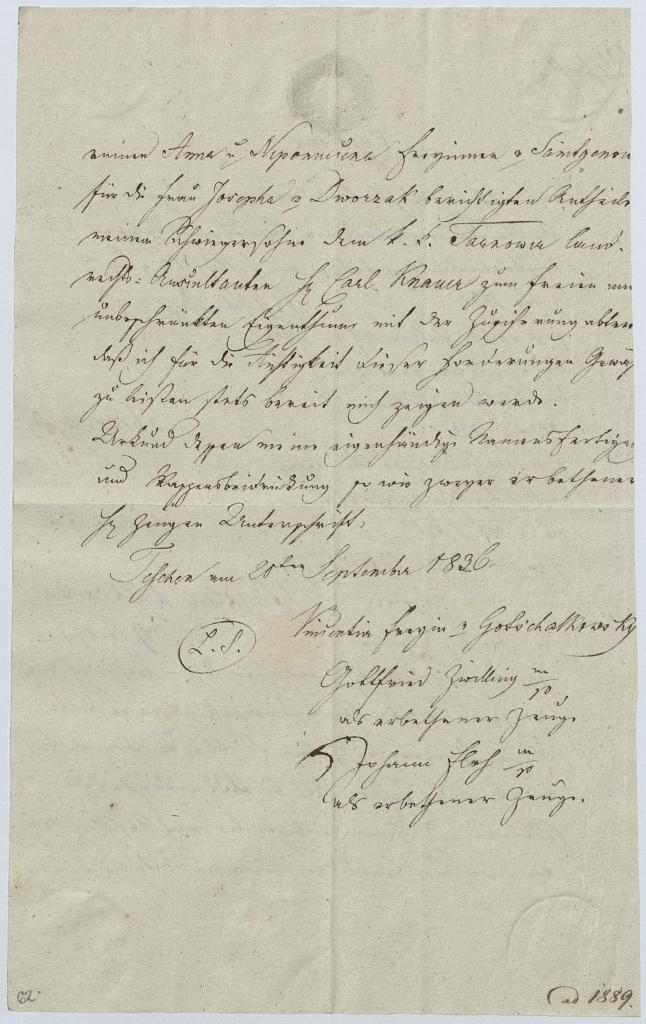 meinen Anna u Nepomucena Freyinnen v
für die Frau Josepha v Dworzak berichtigten Antheile
meinem Schwiegersohne dem k. k. Tarnower Land-
rechts: Auscultanten H Carl Knauer zum freien un
unbeschränkten Eigenthum mit der Zusicherung abtrete
daß ich für die Richtigkeit dieser Forderungen Gewäh
zu leisten stets bereit mich zeigen werde.
Urkund dessen meine eigenhändige Namensfertigun
und Wappensbeidrückung so wie zweyer erbethener
H Zeugen Unterschrift.
Teschen am 20ten September 1836
L. S.
Vincentia Freyin v Gotschalkowsky
Gottfried Zwilling m/p
als erbethener Zeuge
Johann Floh m/p
als erbethener Zeuge.
62
ad 1889.